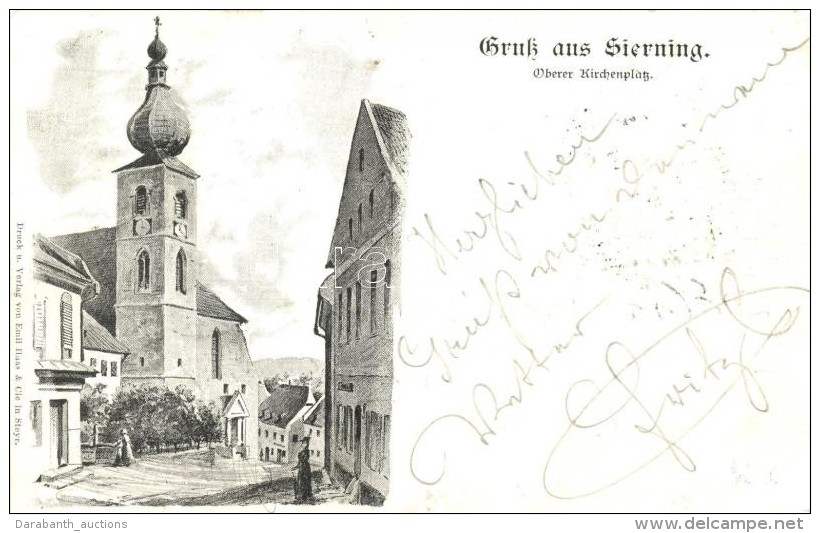 Gruß aus Sierning.
Oberer Kirchenplatz.
Herzlichen
Gruß von
Vetter
Fritz
Druck u. Verlag von Emil Haas & Cie in Steyr.
Darabanth_auctions
www.delcampe.net